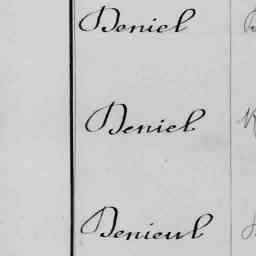 Deniel
Deniel
Denieul